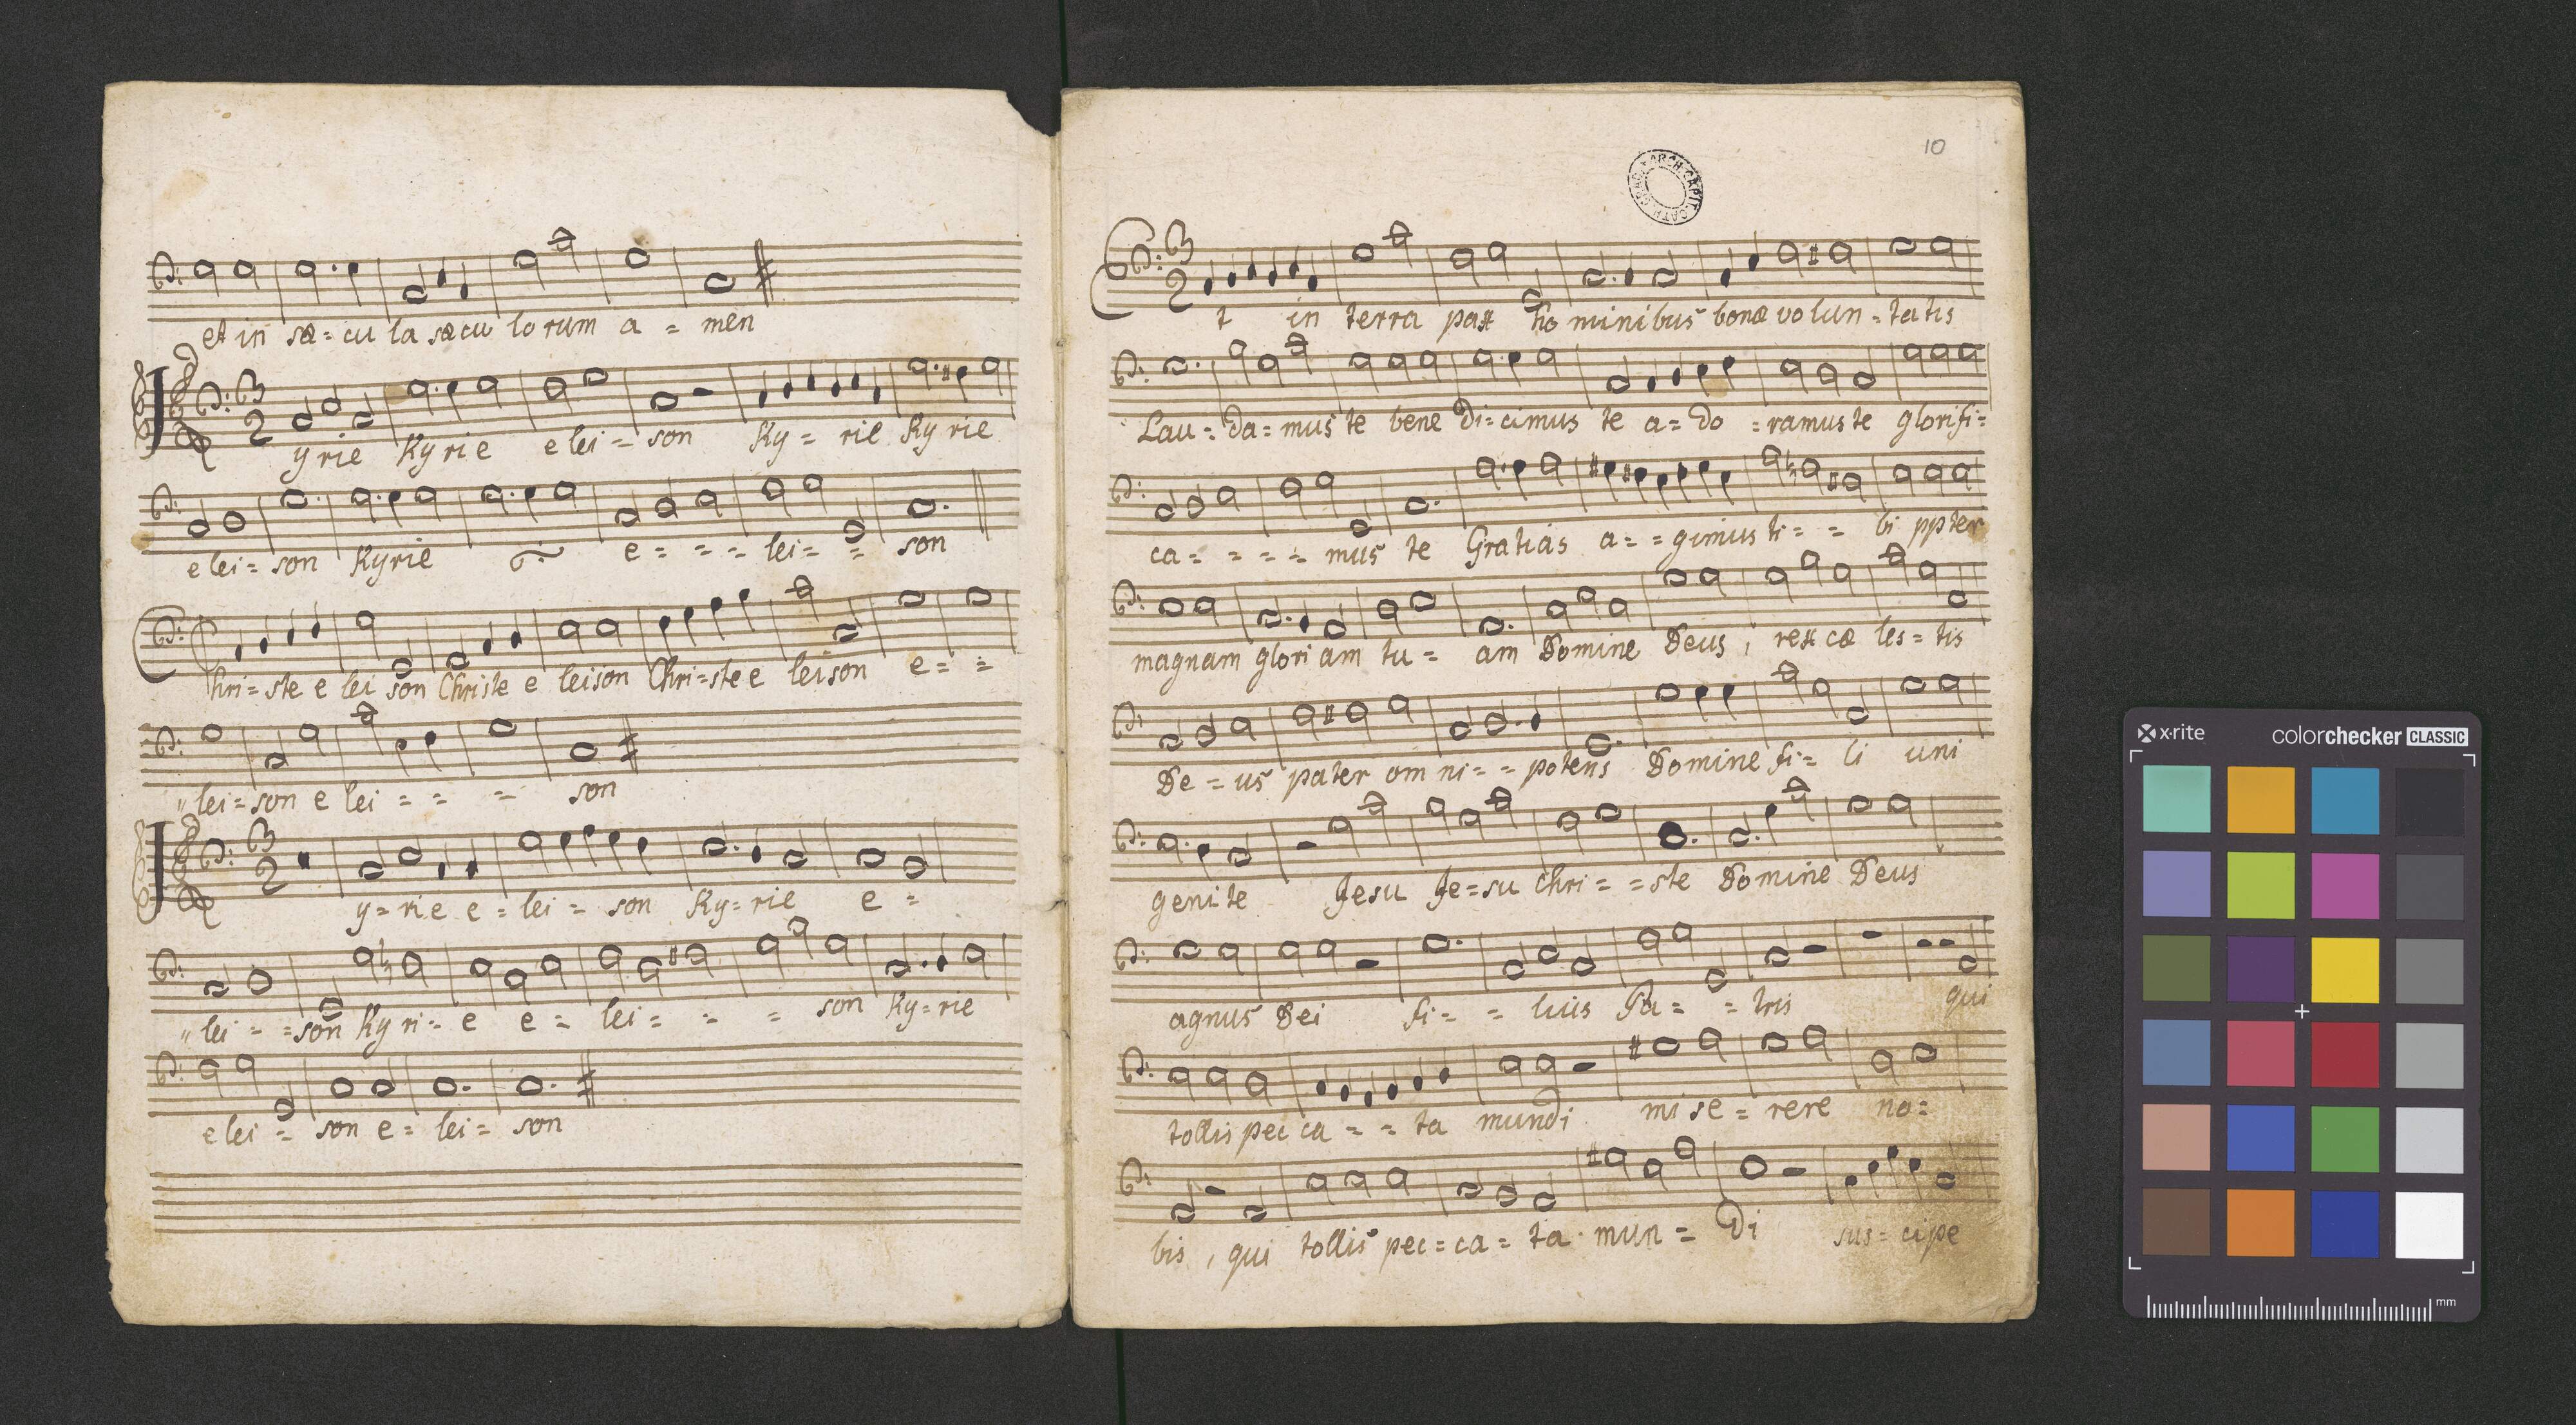 et in sæ = cu la sæcu lo rum a = men
3
2
y rie Kyrie e lei = son Ky = rie Ky rie
e lei = son Kyrie e = = = lei = = son
hri = ste e lei son Christe e leison Chri = ste e leison e = =
" lei = son e lei = = = son
3
2
y = rie e = lei = son Ky = rie e =
" lei = = son Ky ri = e e = lei = = = son Ky = rie
e lei = son e = lei = son
10
ARCH. CAPIT. CATH.
3
2
t in terra pax ho minibus bonæ volun = tatis
Lau = da = mus te bene di = cimus te a = do = ramus te glorifi =
ca = = = = mus te Gratias a = = gimus ti = = bi ppter
magnam gloriam tu = am Domine Deus, rex cæ les = tis
De = us pater om ni = = potens Domine fi = li uni
geni te Jesu Je = su Chri = = ste Domine Deus
agnus Dei fi = = lius Pa = = tris qui
tollis pec ca = = ta mundi mi se = rere no =
bis, qui tollis pec = ca = ta mun = di sus = cipe
x·rite colorchecker CLASSIC
mm